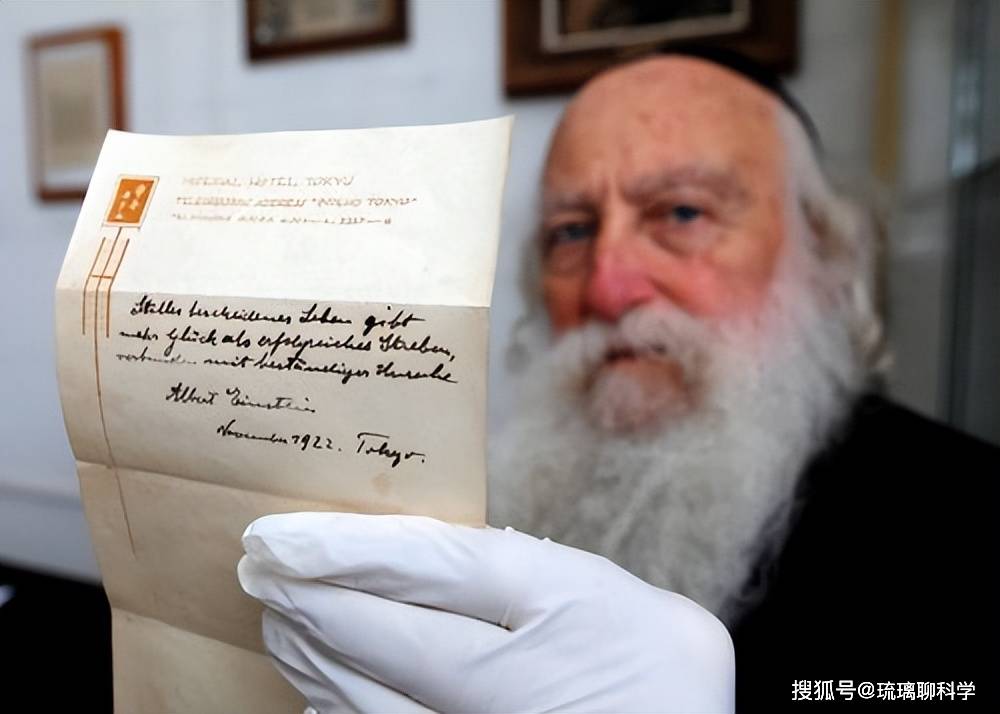 IMPERIAL HOTEL, TOKYO
TELEGRAPHIC ADDRESS "IMPEHO TOKYO"
Stilles bescheidenes Leben gibt
mehr Glück als erfolgreiches Streben,
verbunden mit beständiger Unruhe
Albert Einstein
November 1922. Tokyo.
搜狐号@琉璃聊科学